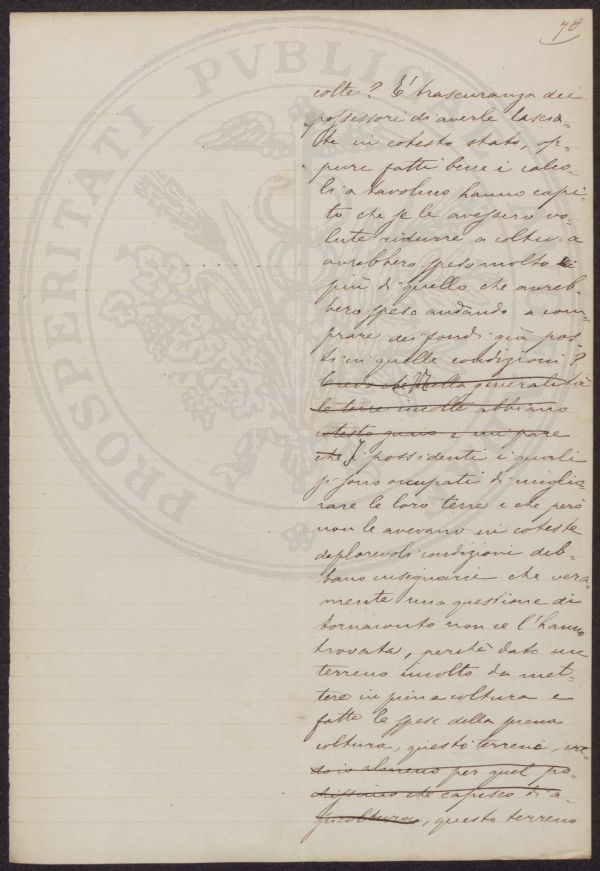 70
colte? E' trascuranza dei
possessori di averle lascia-
te in cotesto stato, op-
pure fatti bene i calco-
li a tavolino hanno capi-
to che se le avessero vo-
lute ridurre a coltura
avrebbero speso molto di
più di quello che avreb-
bero speso andando a com-
prare dei fondi già pos-
ti in quelle condizioni?
Credo che nella generalità
le terre incolte abbiano
cotesto e mi pare
che I possidenti i quali
si sono occupati di miglio
rare le loro terre e che però
non le avevano in coteste
deplorevoli condizioni deb-
bano insegnarci che vera-
mente una questione di
tornaconto non ce l'hanno
trovata, perchè dato un
terreno incolto da met-
tere in piena coltura e
fatte le spese della piena
coltura, questo terreno, cre-
do io almeno per quel po-
chissimo che capisco di a-
gricoltura, questo terreno
PROSPERITATI PVBLICAE